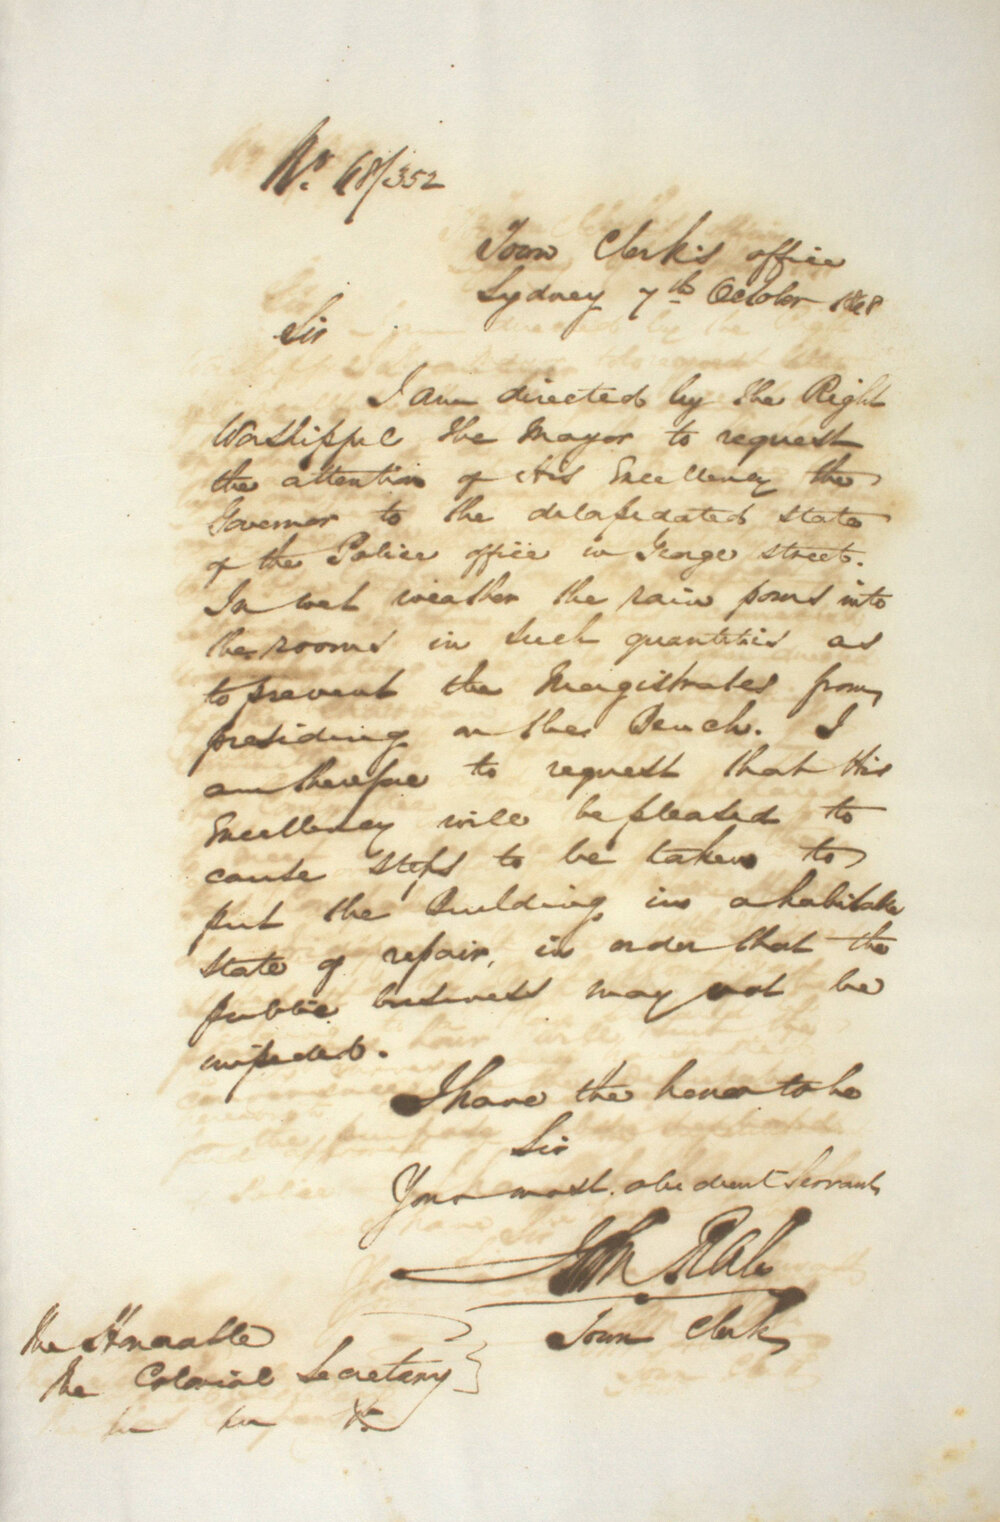 No. 48/352
Town Clerk's office
Sydney 7th October 1848
Sir
I am directed by the Right
Worshipful the Mayor to request
the attention of His Excellency the
Governor to the delapedated state
of the Police office in George street.
In wet weather the rain pours into
the rooms in such quantities as
to prevent the Magistrates from
presiding on the Bench. I
am therefore to request that His
Excellency will be pleased to
cause steps to be taken to
put the Building in a habitable
state of repair, in order that the
public business may not be
impeded.
I have the honor to be
Sir
Your most obedient Servant
John
Town Clerk
The Honorable
The Colonial Secretary